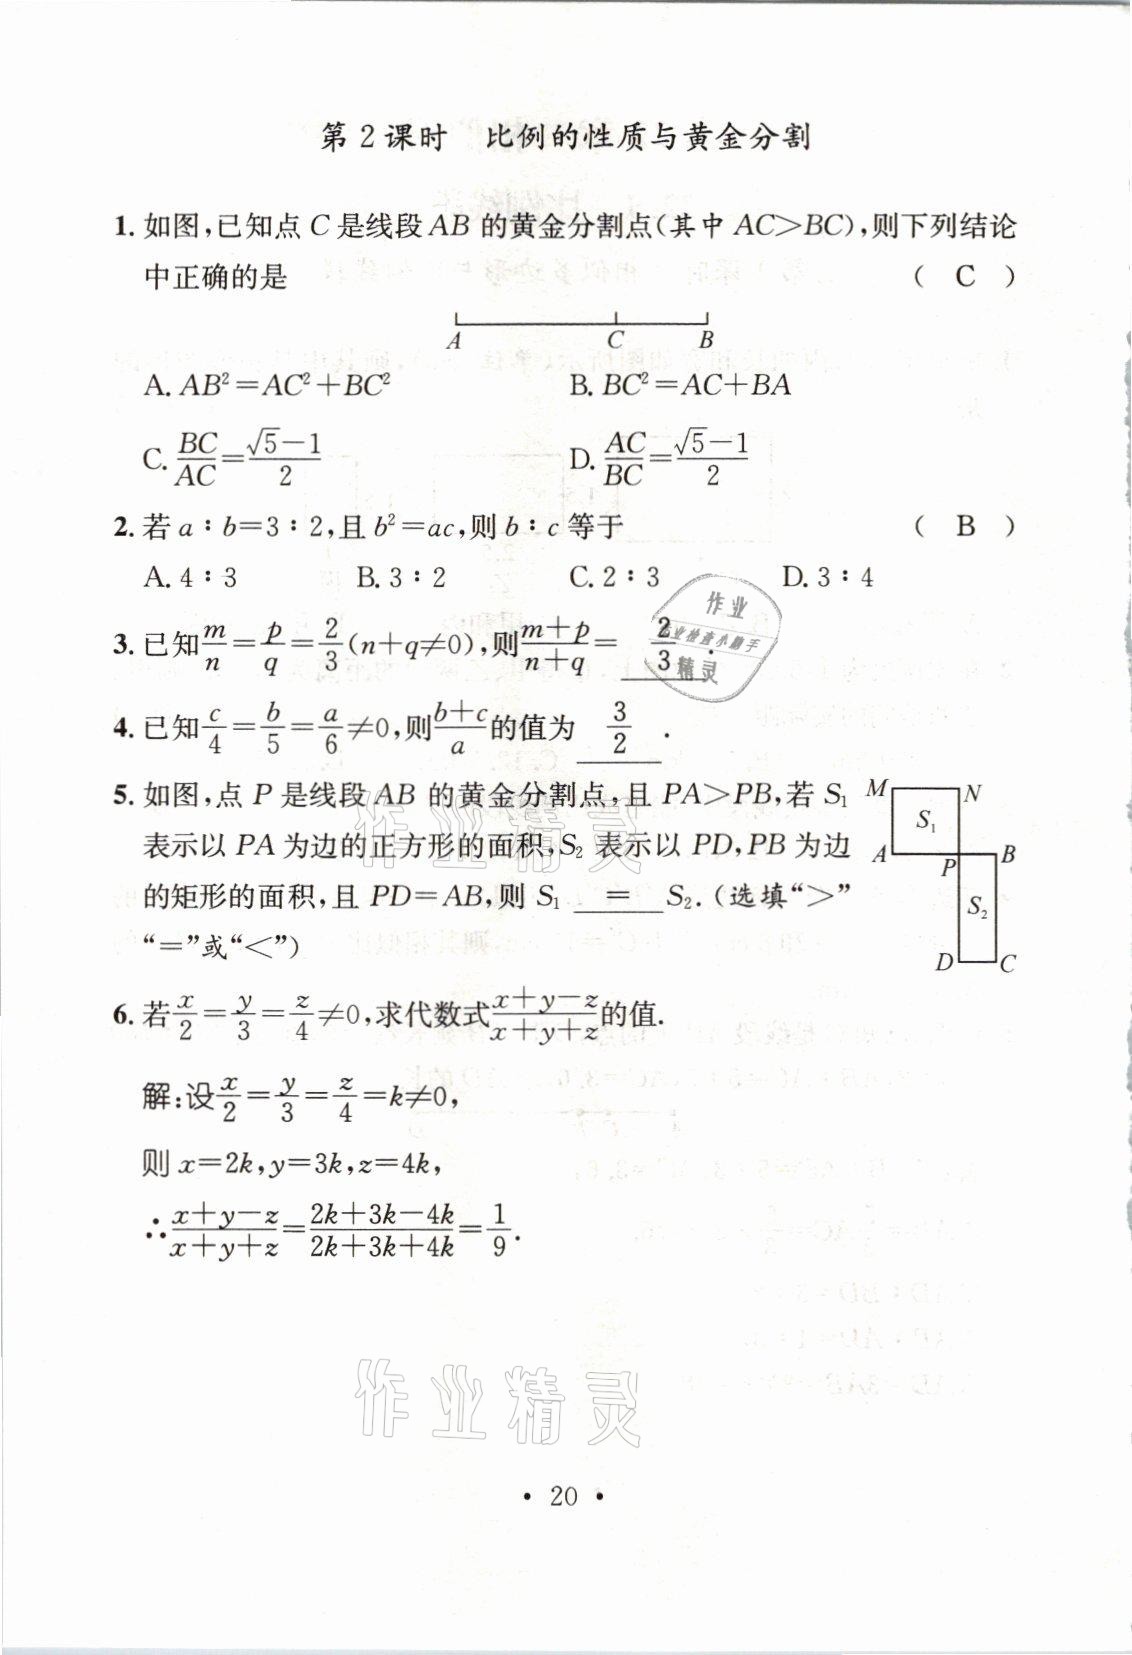 第2课时 比例的性质与黄金分割
1. 如图,已知点 C 是线段 AB 的黄金分割点(其中 AC>BC),则下列结论
中正确的是 ( C )
A C B
A. AB²=AC²+BC² B. BC²=AC+BA
C. BC/AC=(√5−1)/2 D. AC/BC=(√5−1)/2
2. 若 a∶b=3∶2,且 b²=ac,则 b∶c 等于 ( B )
A. 4∶3 B. 3∶2 C. 2∶3 D. 3∶4
3. 已知 m/n=p/q=2/3(n+q≠0),则 (m+p)/(n+q)= 2/3 .
4. 已知 c/4=b/5=a/6≠0,则 (b+c)/a 的值为 3/2 .
5. 如图,点 P 是线段 AB 的黄金分割点,且 PA>PB,若 S₁
表示以 PA 为边的正方形的面积,S₂ 表示以 PD,PB 为边
的矩形的面积,且 PD=AB,则 S₁ = S₂.(选填“>”
“=”或“<”)
M N
S₁
A P B
S₂
D C
6. 若 x/2=y/3=z/4≠0,求代数式 (x+y−z)/(x+y+z) 的值.
解:设 x/2=y/3=z/4=k≠0,
则 x=2k,y=3k,z=4k,
∴(x+y−z)/(x+y+z)=(2k+3k−4k)/(2k+3k+4k)=1/9.
作业精灵
作业
作业检查小助手
精灵
作业精灵
· 20 ·